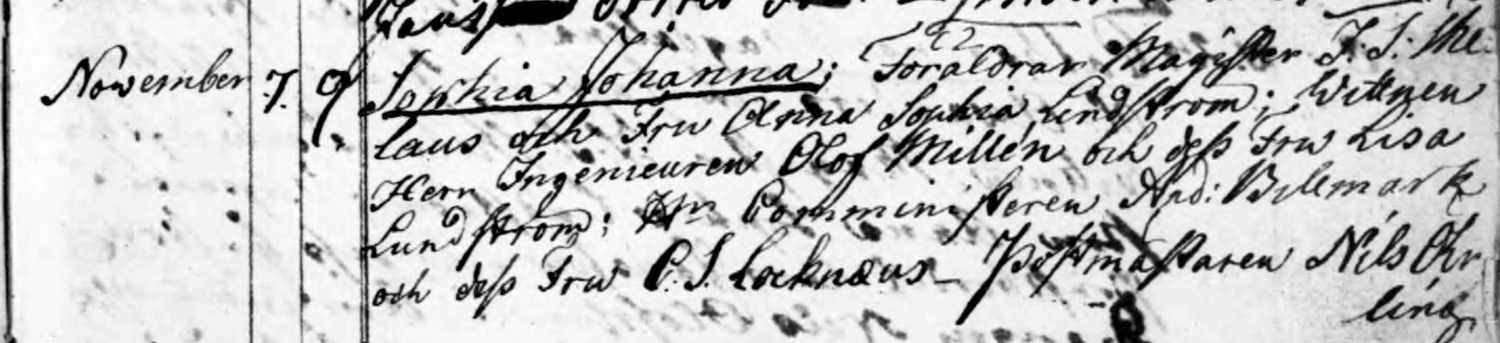 laus
November 7. 9. Sophia Johanna; Föräldrar Magister J. S. The-
laus och Fru Anna Sophia Lindström; Wittnen
Herr Ingenieuren Olof Millén och dess Fru Lisa
Lundström; Hr Comministeren And: Billmark
och dess Fru C. S. Locknæus – Postmästaren Nils Öhr
ling